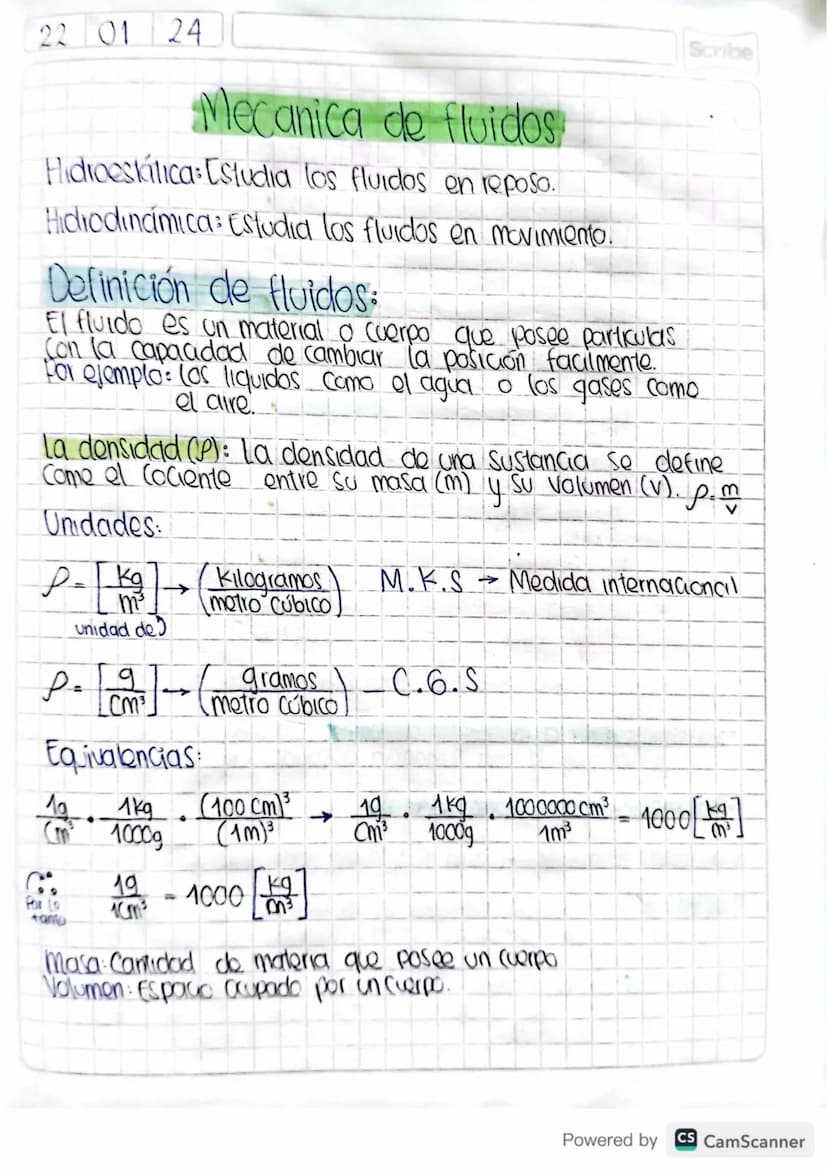 22 01 24
Scribe
Mecanica de fluidos
Hidroestática: Estudia los fluidos en reposo.
Hidrodinámica: Estudia los fluidos en movimiento.
Definición de fluidos:
El fluido es un material o cuerpo que posee particulas
con la capacidad de cambiar la posición facilmente.
Por ejemplo: los liquidos como el agua o los gases como
el aire.
La densidad (ρ): La densidad de una sustancia se define
como el cociente entre su masa (m) y su volumen (v). ρ = m/v
Unidades:
ρ = [kg/m³] → (Kilogramos/metro cúbico) M.K.S → Medida internacional
unidad de
ρ = [g/cm³] → (gramos/metro cúbico) – C.G.S
Equivalencias:
1g/cm³ · 1kg/1000g · (100 cm)³/(1m)³ → 1g/cm³ · 1kg/1000g · 1000000 cm³/1m³ = 1000 [kg/m³]
∴ 1g/1cm³ = 1000 [kg/m³]
Por lo
tanto
Masa: Cantidad de materia que posee un cuerpo
Volumen: Espacio ocupado por un cuerpo.
Powered by CS CamScanner